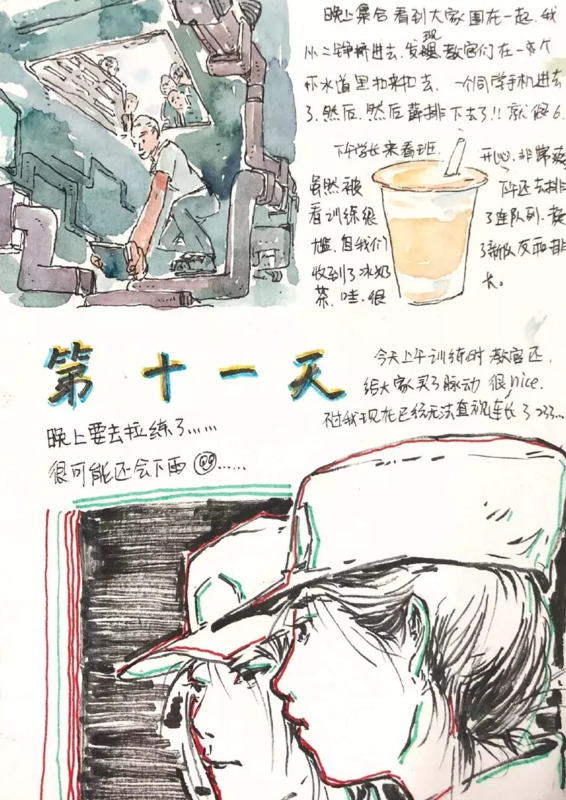 晚上集合看到大家围在一起,我
从二钟桥进去,发现教官们在一个
下水道里扣来扣去,一个同学手机进去
了,然后,然后薛排下去了!!就很6.
下午学长来看班.
虽然被
看训练很
尴,但我们
收到了冰奶
茶,哇,很
开心,非常
下午还去排
了连队列,
了新队友而排
长。
第十一天
今天上午训练时教官还
给大家买了脉动 很nice.
不过我现在已经无法直视连长了???...
晚上要去拉练了......
很可能还会下雨......